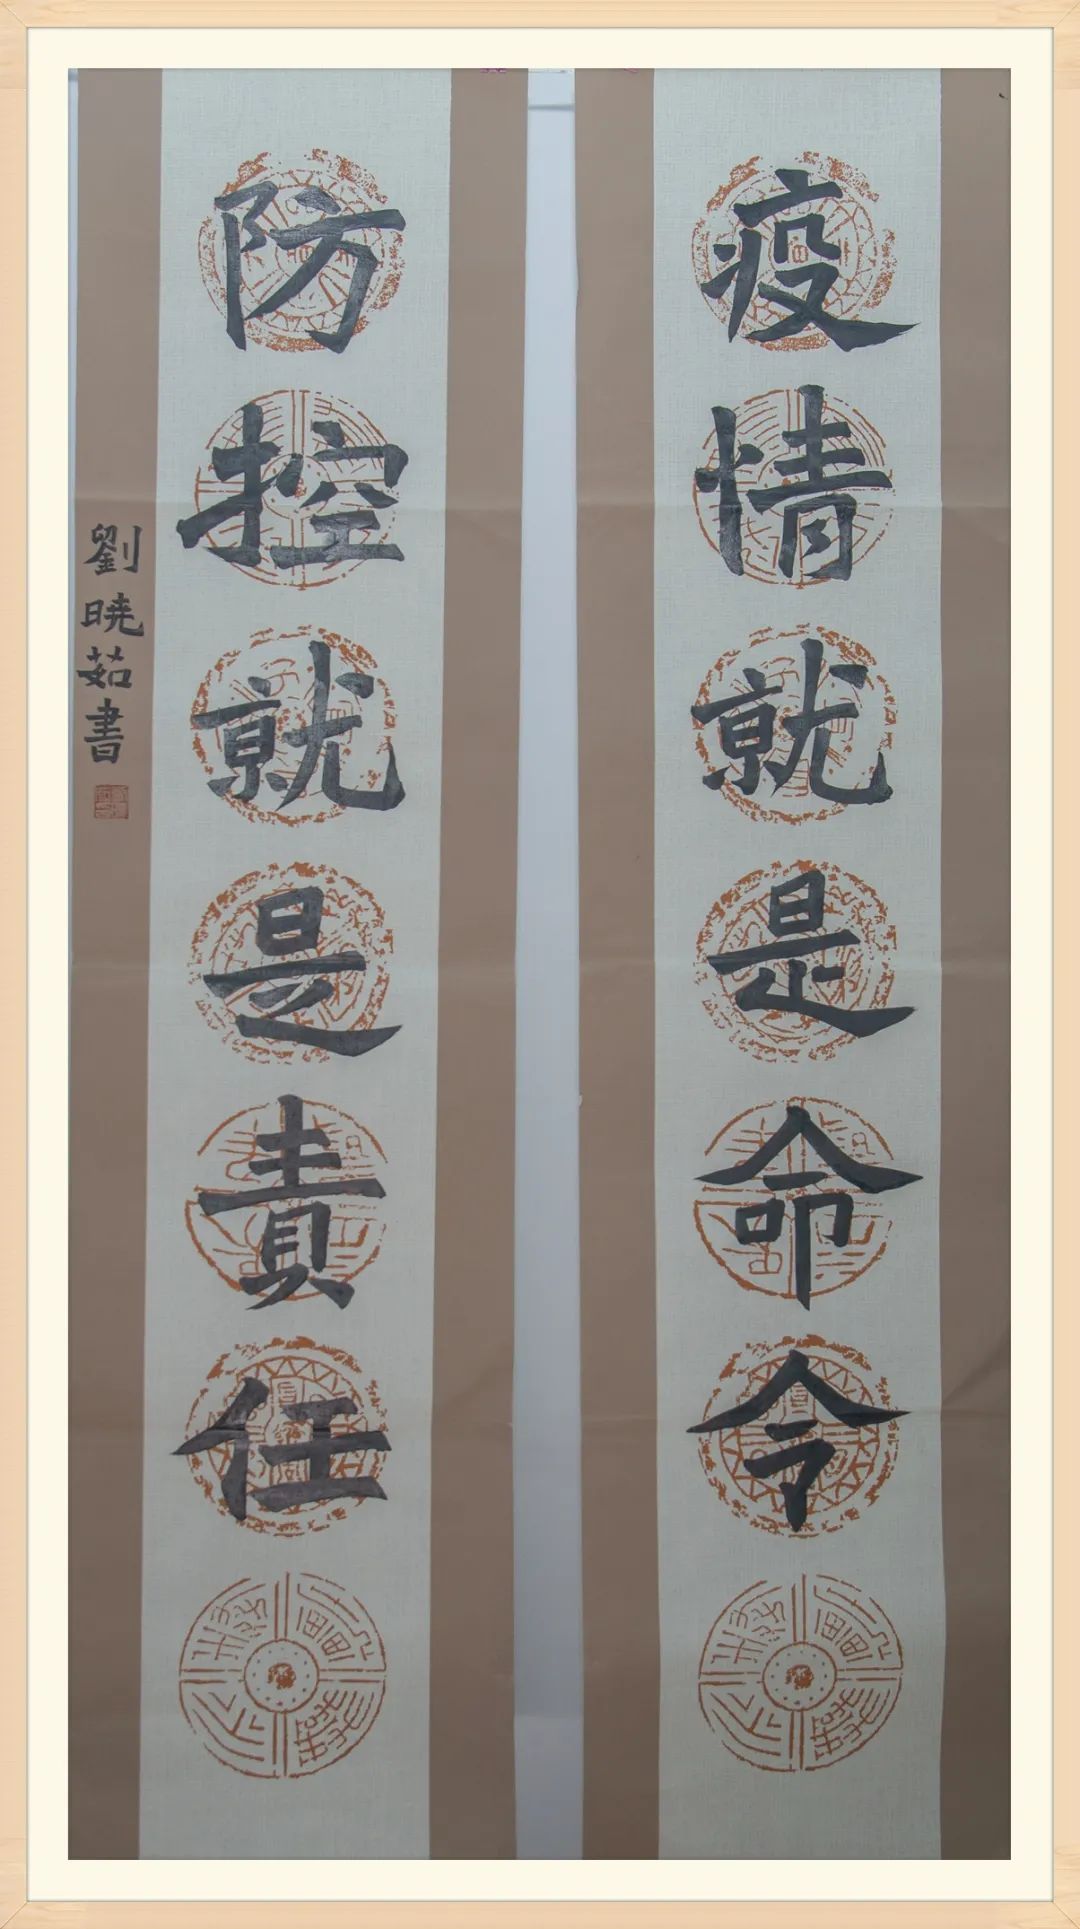 疫情就是命令
防控就是責任
劉曉茹書